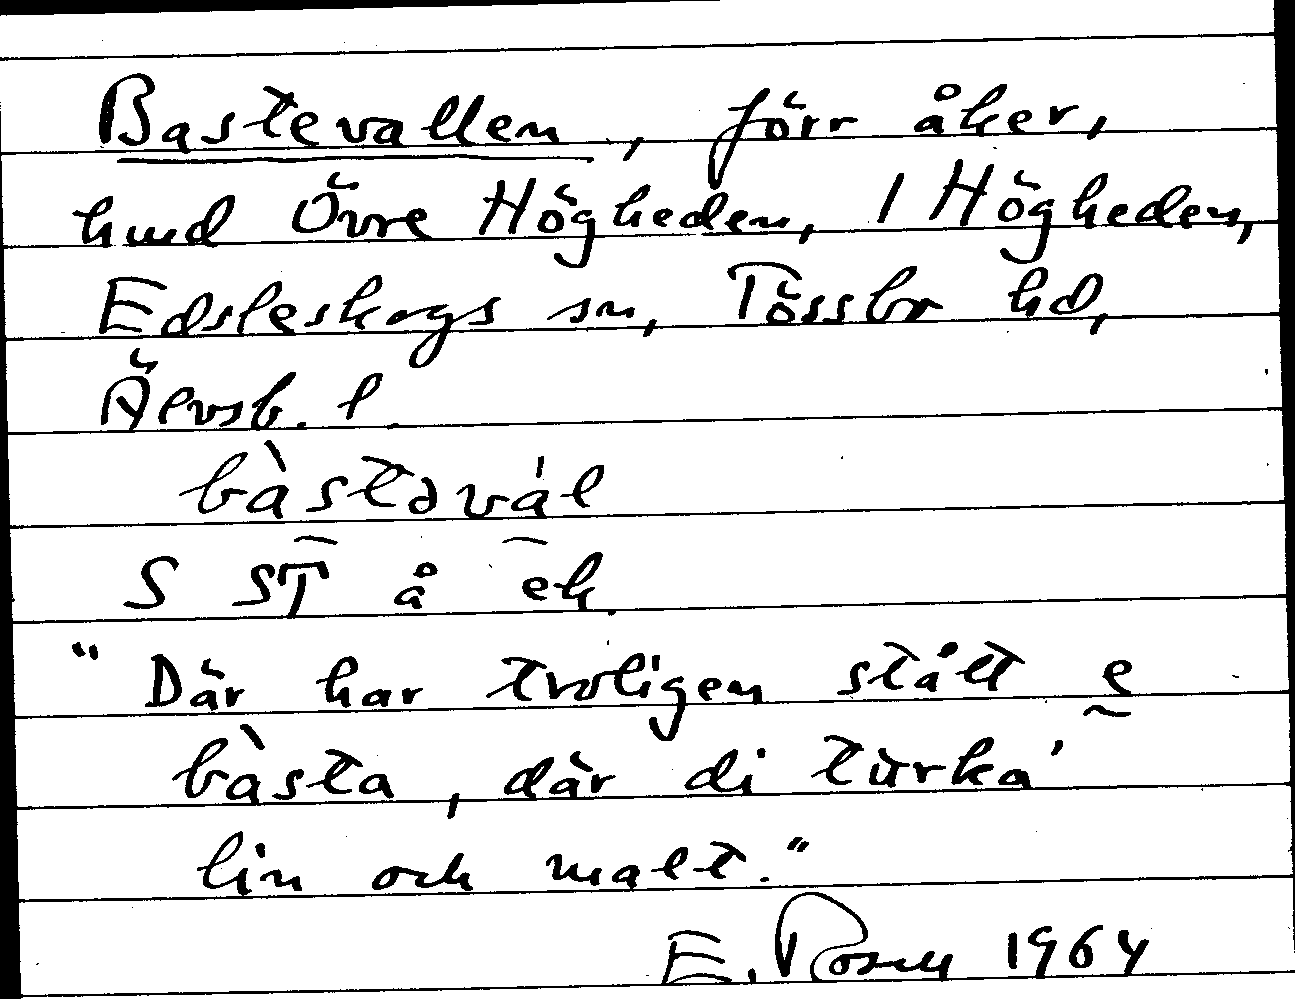 Bastevallen, förr åker,
hmd Övre Högheden, 1 Högheden,
Edsleskogs sn, Tössbo hd,
Älvsb. l.
bàstəvál
S ST å ek.
"Där har troligen stått e
bàsta, där di tùrka'
lin och malt."
E. Rosell 1964